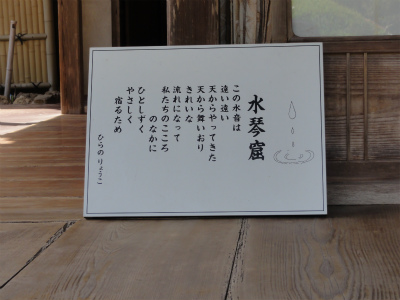 水琴窟
この水音は
遠い遠い
天からやってきた
天から舞いおり
きれいな
流れになって
私たちのこころ
のなかに
ひとしずく
やさしく
宿るため
ひらの りょうこ